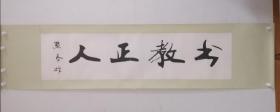 书教正人